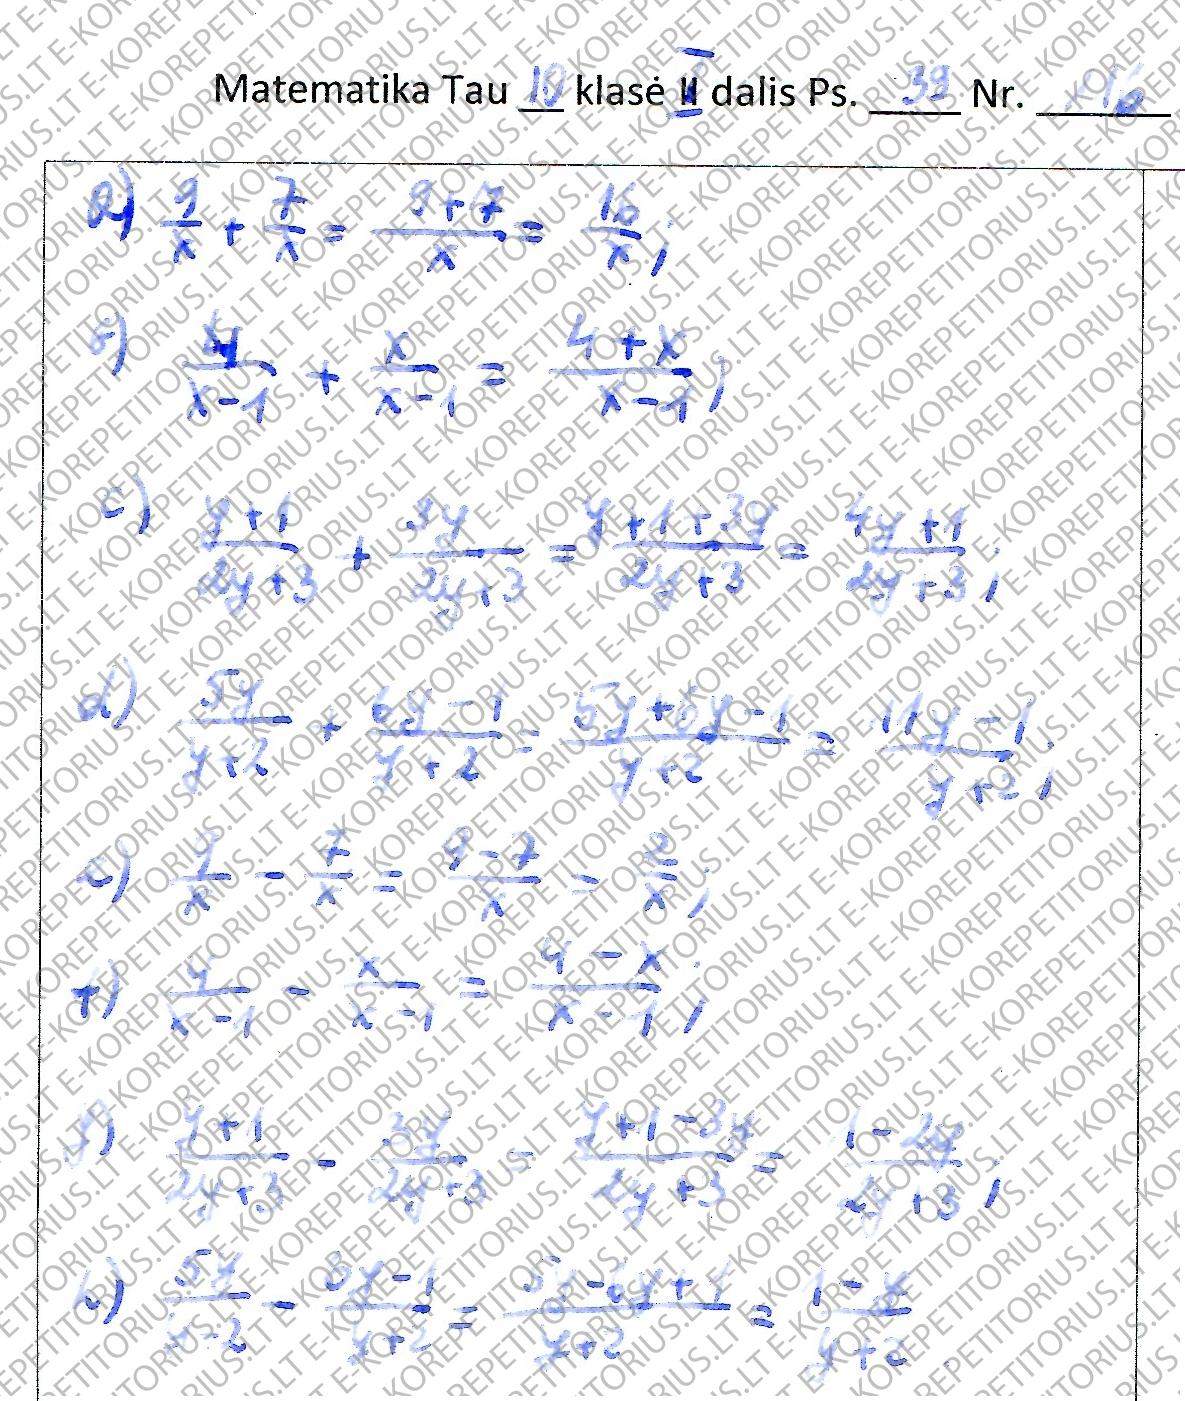 Matematika Tau 10 klasė I dalis Ps. 39 Nr. 16
a) 9/x + 7/x = (9+7)/x = 16/x;
b) 4/(x-1) + x/(x-1) = (4+x)/(x-1);
c) (y+1)/(2y+3) + 3y/(2y+3) = (y+1+3y)/(2y+3) = (4y+1)/(2y+3);
d) 5y/(y+2) + (6y-1)/(y+2) = (5y+6y-1)/(y+2) = (11y-1)/(y+2);
e) 9/x - 7/x = (9-7)/x = 2/x;
f) 4/(x-1) - x/(x-1) = (4-x)/(x-1);
g) (y+1)/(2y+3) - 3y/(2y+3) = (y+1-3y)/(2y+3) = (1-2y)/(2y+3);
h) 5y/(y-2) - (6y-1)/(y+2) = (5y-6y+1)/(y+2) = (1-y)/(y+2)
E-KOREPETITORIUS.LT